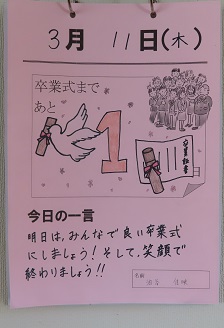 3月 11日(木)
卒業式まで
あと
1
卒業証書
日
今日の一言
明日は、みんなで良い卒業式
にしましょう！そして、笑顔で
終わりましょう!!
名前